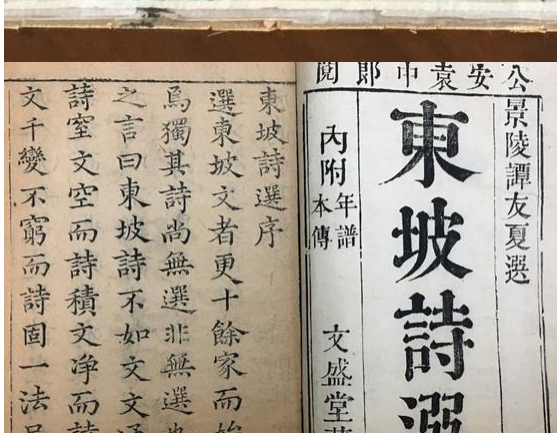 公安袁中郎閱
景陵譚友夏選
東坡詩
內附年譜本傳
文盛堂
東坡詩選序
選東坡文者更十餘家而始
焉獨其詩尚無選非無選也
之言曰東坡詩不如文文通
詩窒文空而詩積文净而詩
文千變不窮而詩固一法足